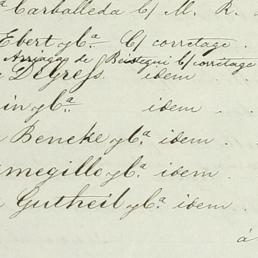 ª Carballeda C/ M. R.
Ebert y Cª C/ corretage.
Arrayas de Beistegui C/ corretage
Degress. idem
in y Cª idem.
Beneke y Cª idem.
megillo y Cª idem.
Gutheil y Cª idem.
á